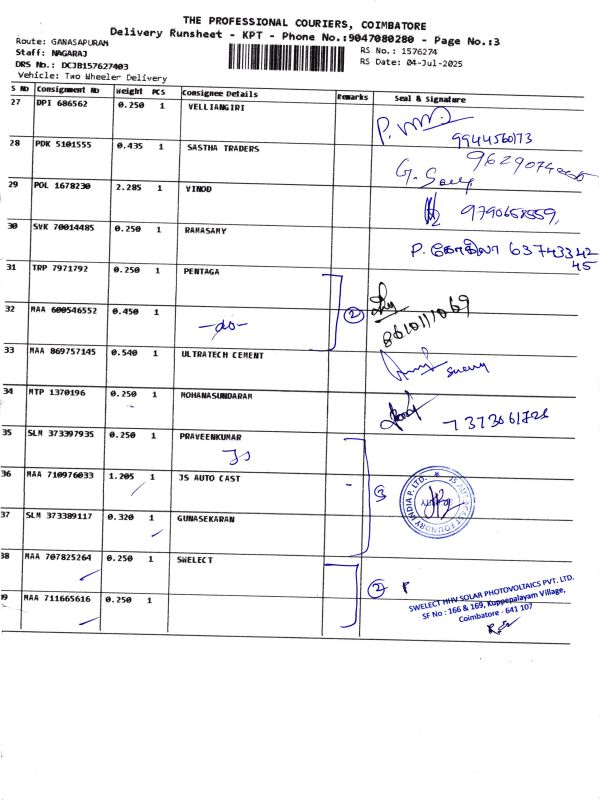 THE PROFESSIONAL COURIERS, COIMBATORE
Delivery Runsheet - KPT - Phone No.:9047080280 - Page No.:3
Route: GANASAPURAM
Staff: NAGARAJ
DRS No.: DCJB157627403
Vehicle: Two Wheeler Delivery
RS No.: 1576274
RS Date: 04-Jul-2025
S No Consignment No Weight PCS Consignee Details Remarks Seal & Signature
27 DPI 686562 0.250 1 VELLIANGIRI
9944560173
28 PDK 5101555 0.435 1 SASTHA TRADERS
29 POL 1678230 2.285 1 VINOD
9790658559,
30 SVK 70014485 0.250 1 RAMASAMY
P. கோகிலா 6374334245
31 TRP 7971792 0.250 1 PENTAGA
32 MAA 600546552 0.450 1
-do-
2
8610111069
33 MAA 869757145 0.540 1 ULTRATECH CEMENT
34 MTP 1370196 0.250 1 MOHANASUNDARAM
35 SLM 373397935 0.250 1 PRAVEENKUMAR
Js
36 MAA 710976033 1.205 1 JS AUTO CAST
3
JS AUTO CAST FOUNDRY INDIA P. LTD.
37 SLM 373389117 0.320 1 GUNASEKARAN
38 MAA 707825264 0.250 1 SWELECT
2
SWELECT HHV SOLAR PHOTOVOLTAICS PVT. LTD.
SF No : 166 & 169, Kuppepalayam Village,
Coimbatore - 641 107
39 MAA 711665616 0.250 1